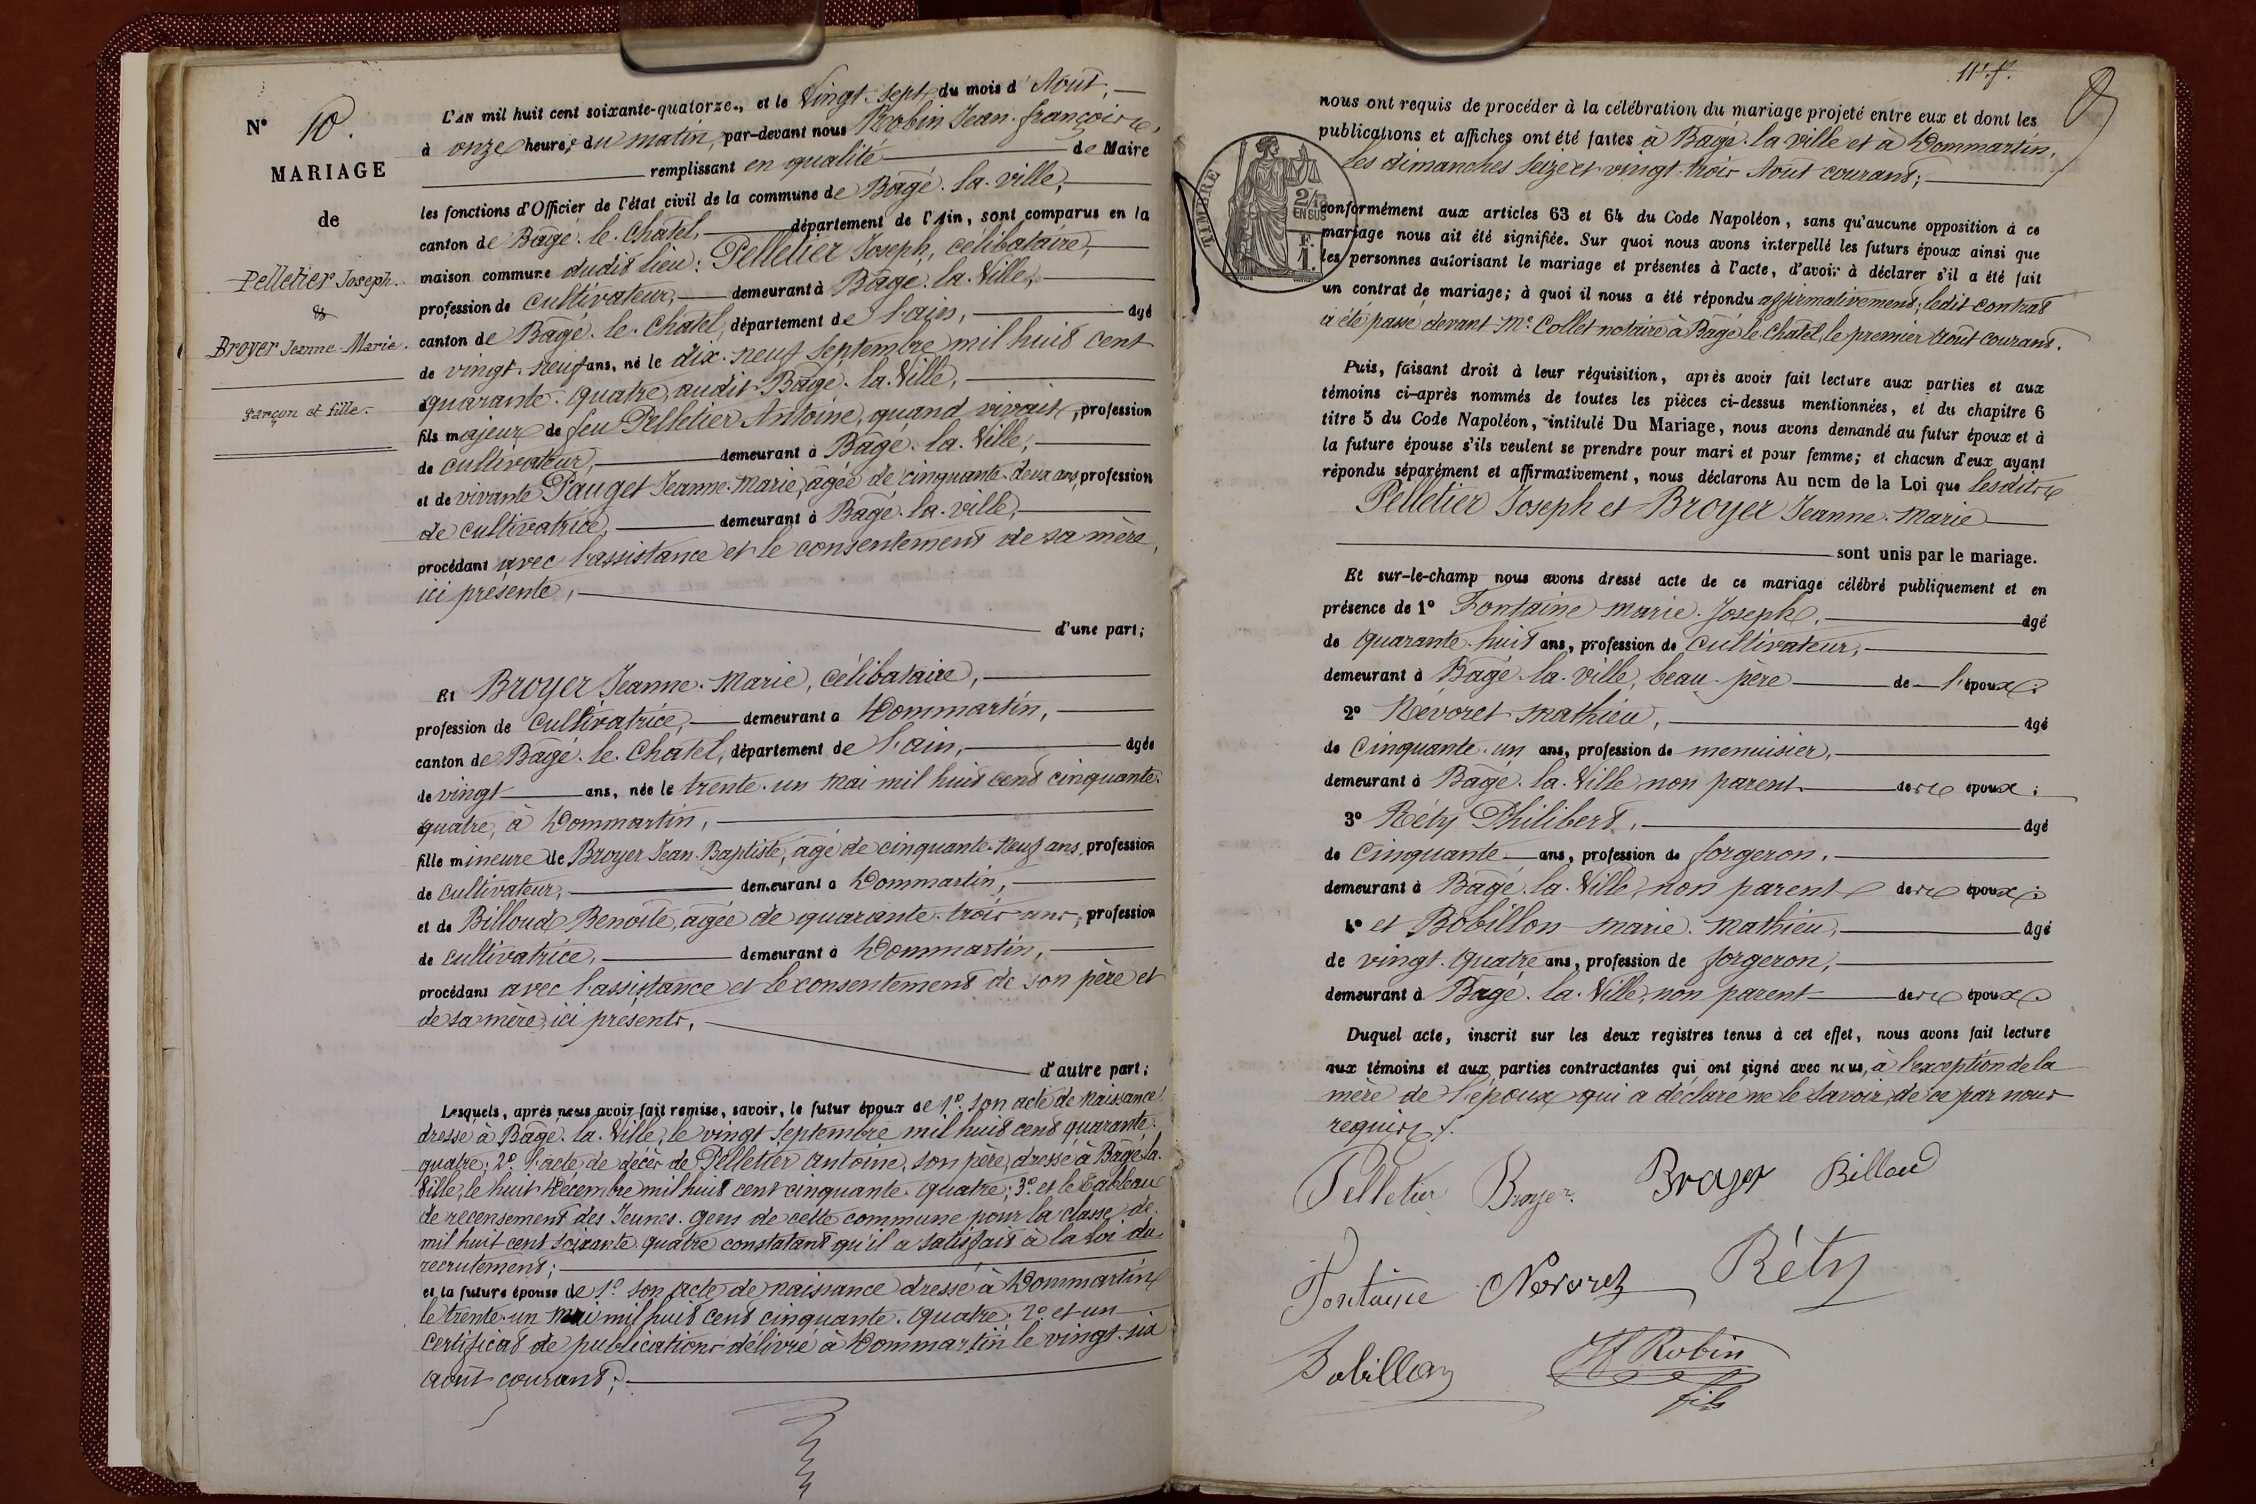 N° 10.
MARIAGE
de
Pelletier Joseph.
&
Broyer Jeanne-Marie.
garçon et fille.
L'AN mil huit cent soixante-quatorze, et le Vingt-sept du mois d'Août,
à onze heures du matin, par-devant nous Robin Jean-françois,
remplissant en qualité de Maire
les fonctions d'Officier de l'état civil de la commune de Bâgé-la-ville,
canton de Bâgé-le-Chatel, département de l'Ain, sont comparus en la
maison commune dudit lieu: Pelletier Joseph, célibataire,
profession de cultivateur, demeurant à Bâgé-la-Ville,
canton de Bâgé-le-Chatel, département de l'ain, âgé
de vingt-neuf ans, né le dix-neuf Septembre mil huit cent
quarante-quatre, audit Bâgé-la-Ville,
fils majeur de feu Pelletier Antoine, quand vivait, profession
de cultivateur, demeurant à Bâgé-la-Ville,
et de vivante Pauget Jeanne-Marie, âgée de cinquante-deux ans, profession
de cultivatrice, demeurant à Bâgé-la-ville,
procédant avec l'assistance et le consentement de sa mère,
ici présente,
d'une part;
Et Broyer Jeanne-Marie, célibataire,
profession de cultivatrice, demeurant à Dommartin,
canton de Bâgé-le-Chatel, département de l'ain, âgée
de vingt ans, née le trente-un mai mil huit cent cinquante-
quatre, à Dommartin,
fille mineure de Broyer Jean-Baptiste, âgé de cinquante-neuf ans, profession
de cultivateur, demeurant à Dommartin,
et de Billoud Benoîte, âgée de quarante-trois ans, profession
de cultivatrice, demeurant à Dommartin,
procédant avec l'assistance et le consentement de son père et
de sa mère, ici présents,
d'autre part;
Lesquels, après nous avoir fait remise, savoir, le futur époux de 1°. son acte de naissance
dressé à Bâgé-la-Ville, le vingt Septembre mil huit cent quarante-
quatre; 2°. l'acte de décès de Pelletier Antoine, son père, dressé à Bâgé-la-
Ville, le huit Décembre mil huit cent cinquante-quatre; 3°. et le Tableau
de recensement des Jeunes-gens de cette commune pour la classe de
mil huit cent soixante-quatre constatant qu'il a satisfait à la loi du
recrutement;
et la future épouse de 1°. son acte de naissance dressé à Dommartin
le trente-un mai mil huit cent cinquante-quatre; 2°. et un
certificat de publications délivré à Dommartin le vingt-six
août courant;
11e. f.
nous ont requis de procéder à la célébration du mariage projeté entre eux et dont les
publications et affiches ont été faites à Bâgé-la-ville et à Dommartin,
les dimanches Seize et vingt-trois Août courant;
TIMBRE
2/10
EN SUS
F.
1.
conformément aux articles 63 et 64 du Code Napoléon, sans qu'aucune opposition à ce
mariage nous ait été signifiée. Sur quoi nous avons interpellé les futurs époux ainsi que
les personnes autorisant le mariage et présentes à l'acte, d'avoir à déclarer s'il a été fait
un contrat de mariage; à quoi il nous a été répondu affirmativement; ledit contrat
a été passé devant Me. Collet notaire à Bâgé-le-Chatel, le premier Août courant.
Puis, faisant droit à leur réquisition, après avoir fait lecture aux parties et aux
témoins ci-après nommés de toutes les pièces ci-dessus mentionnées, et du chapitre 6
titre 5 du Code Napoléon, intitulé Du Mariage, nous avons demandé au futur époux et à
la future épouse s'ils veulent se prendre pour mari et pour femme; et chacun d'eux ayant
répondu séparément et affirmativement, nous déclarons Au nom de la Loi que lesdits
Pelletier Joseph et Broyer Jeanne-Marie
sont unis par le mariage.
Et sur-le-champ nous avons dressé acte de ce mariage célébré publiquement et en
présence de 1° Fontaine Marie-Joseph, âgé
de quarante-huit ans, profession de cultivateur,
demeurant à Bâgé-la-ville, beau-père de l'époux;
2° Névoret Mathieu, âgé
de Cinquante-un ans, profession de menuisier,
demeurant à Bâgé-la-Ville, non parent des époux;
3° Réty Philibert, âgé
de Cinquante ans, profession de forgeron,
demeurant à Bâgé-la-Ville, non parent des époux;
4° et Bobillon Marie-Mathieu, âgé
de vingt-quatre ans, profession de forgeron,
demeurant à Bâgé-la-Ville, non parent des époux.
Duquel acte, inscrit sur les deux registres tenus à cet effet, nous avons fait lecture
aux témoins et aux parties contractantes qui ont signé avec nous, à l'exception de la
mère de l'époux qui a déclaré ne le Savoir, de ce par nous
requis.
Pelletier Broyer Broyer Billoud
Fontaine Nevoret Réty
Bobillon Jf Robin
fils